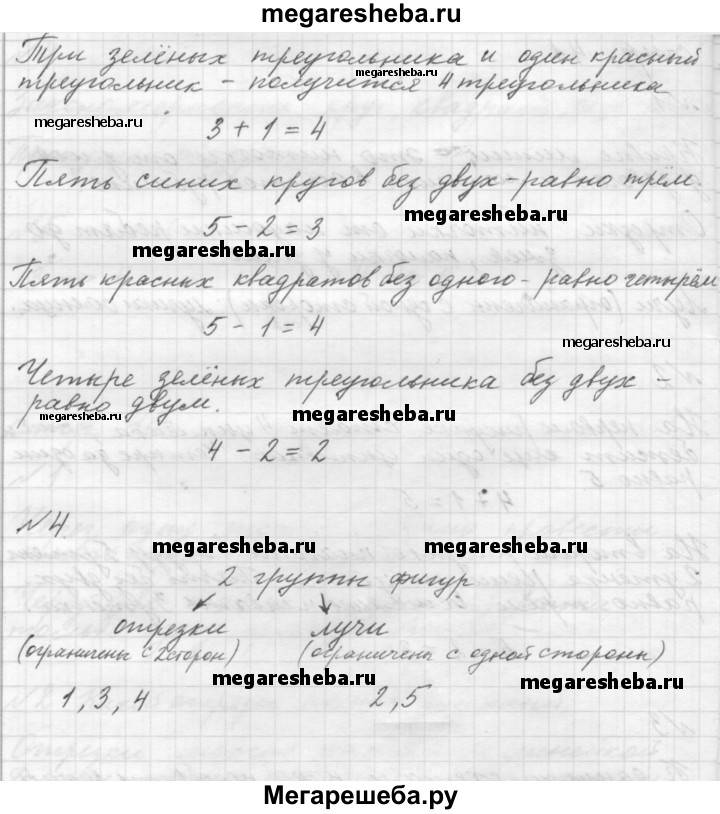 megaresheba.ru
Три зелёных треугольника и один красный
треугольник - получится 4 треугольника
megaresheba.ru
megaresheba.ru
3 + 1 = 4
Пять синих кругов без двух - равно трём.
megaresheba.ru
5 - 2 = 3
megaresheba.ru
Пять красных квадратов без одного - равно четырём
5 - 1 = 4
megaresheba.ru
Четыре зелёных треугольника без двух -
равно двум.
megaresheba.ru
megaresheba.ru
4 - 2 = 2
№4
megaresheba.ru
megaresheba.ru
2 группы фигур
отрезки лучи
(ограничены с 2 сторон) (ограничены с одной стороны)
megaresheba.ru
megaresheba.ru
1, 3, 4 2, 5
Мегарешеба.ру